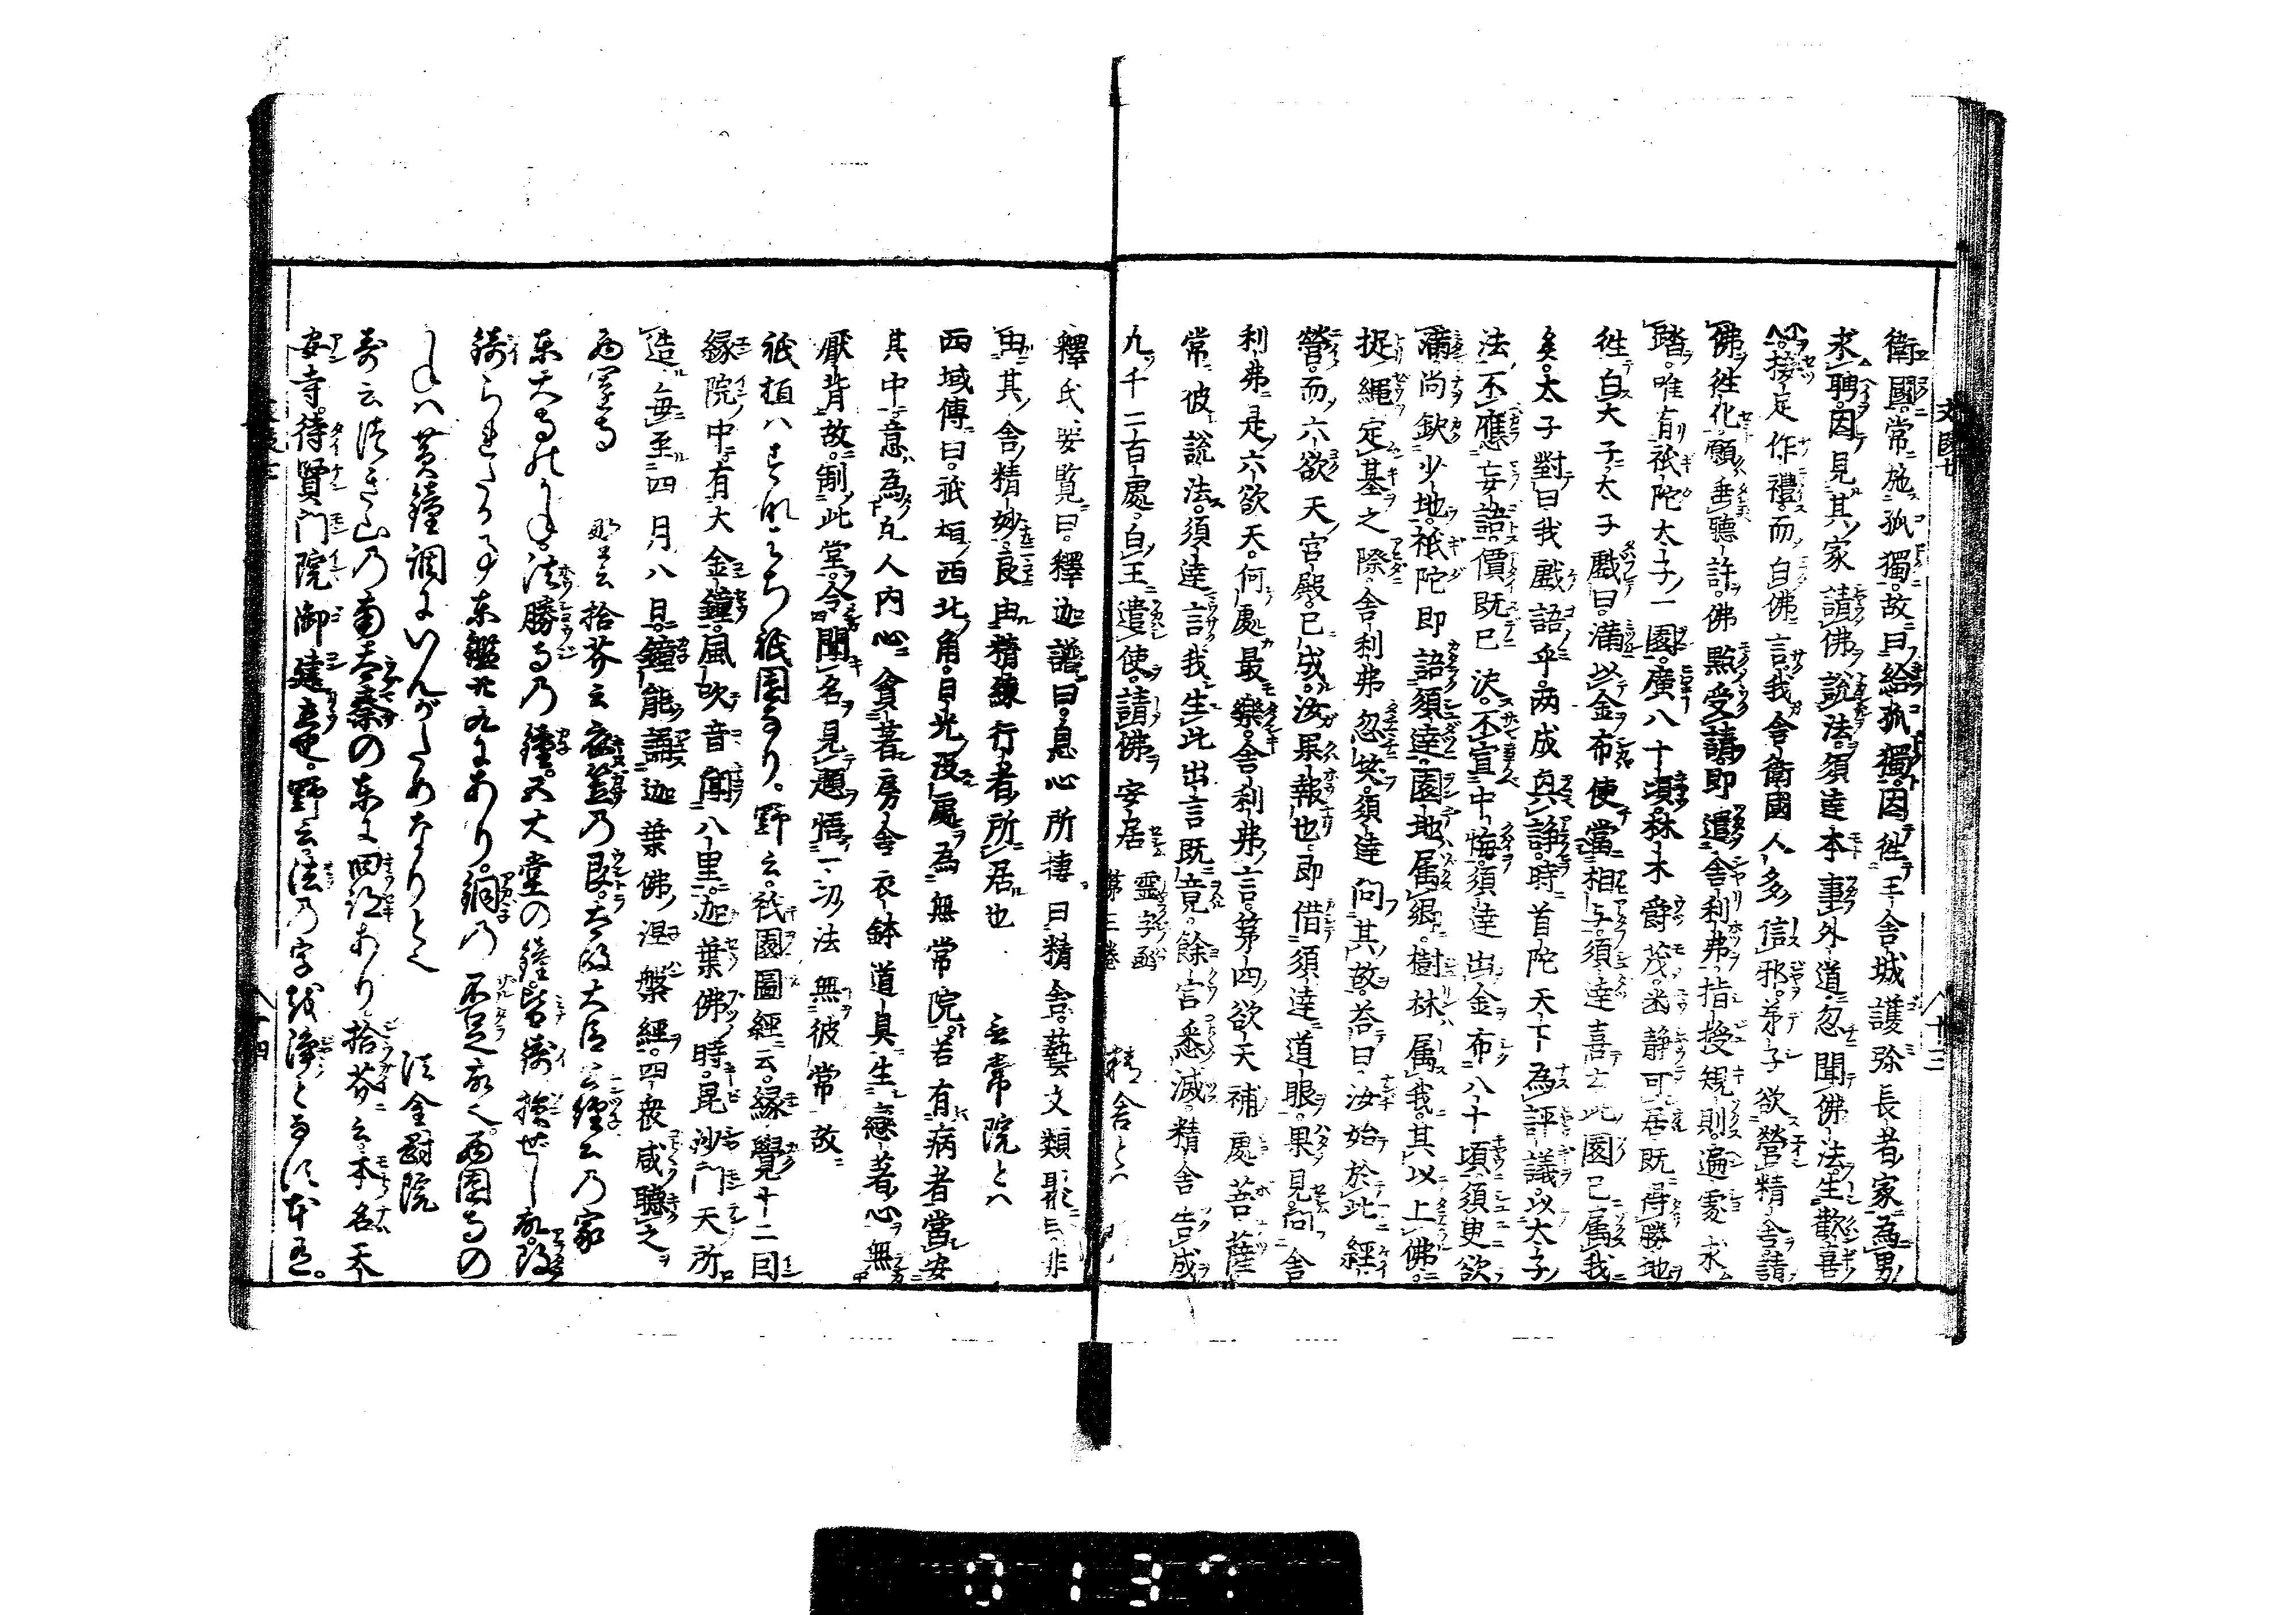 衛國常施孤獨故曰給孤獨因往王舍城護弥長者家為男
求聘因見其家請佛說法須達本事外道忽聞佛法生歡喜
接足作禮而白佛言我舍衛國人多信邪弟子欲營精舍請
佛往化願垂聽許佛黙受請即遣舍利弗指授規則遍處求
踏唯有祇陀太子一園廣八十頃林木欝茂閑静可居既得勝地
往白太子太子戲曰満以金布使當相与須達喜云此園已属我
矣太子對曰我戲語乎兩成真諍時首陀天下為評議以太子
法不應妄語價既已決不宜中悔須達出金布八十頃須臾欲
満尚欽少地祇陀即語須達園地属縁樹林属我其以上佛
捉繩定基之際舍利弗忽笑須達問其故荅曰汝始於此經
營而六欲天宮殿已成汝果報也即借須達道眼果見問舍
利弗是六欲天何處最樂舍利弗言第四欲天補處菩薩
常彼說法須達言我生此出言既竟餘宮悉滅精舍告成
九千二百處白王遣使請佛安居 第三卷 精舍とハ
釋氏要覧曰釋迦譜曰息心所棲曰精舍藝文類聚云非
由其舍精妙良由精練行者所居也 無常院とハ
西域傳曰祇桓西北角日光没處為無常院若有病者當安
其中意為凡人内心貪著房舍衣鉢道具生戀著心無
厭背故制此堂令聞名見題悟一切法無彼常故
祇桓ハ 祇園なり野云祇園圖經云緑覺十二因
縁院中有大金鐘風吹音聞八里迦葉佛時昆沙門天所
造毎至四月八日鐘能誦迦葉佛涅槃經四衆咸聽之
西園寺 野云拾芥云衣笠乃艮太政大臣公經公乃家
東大寺 法勝寺乃鐘五大堂の鐘皆鋳損せし故改
鋳られたる事東鑑廿九にあり銅乃不足故也西園寺の
ハ黄鐘調にいんがためなりとぞ 法金剛院
壽云 山乃南太秦の東に あり拾芥云本名天
安寺待賢門院御建立也野云法乃字